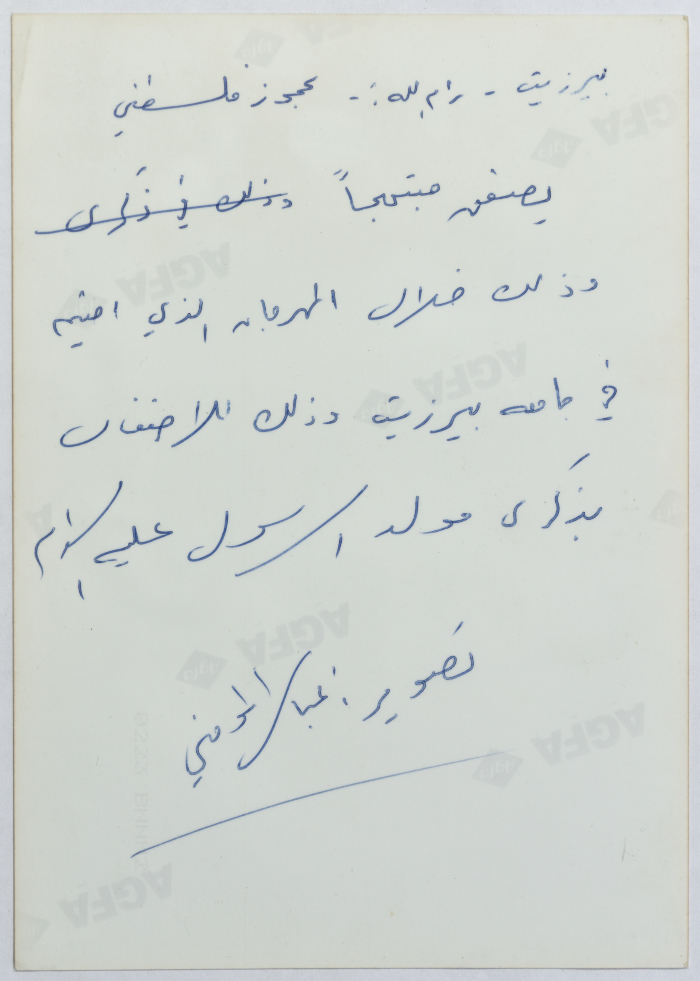 بيرزيت - رام الله :- عجوز فلسطيني
يصفق مبتهجاً وذلك في ذكرى
وذلك خلال المهرجان الذي اقيم
في جامعه بيرزيت وذلك للاحتفال
بذكرى مولد الرسول عليه السلام
تصوير : عباس المومني
AGFA
AGFA
AGFA
AGFA
AGFA
AGFA
AGFA